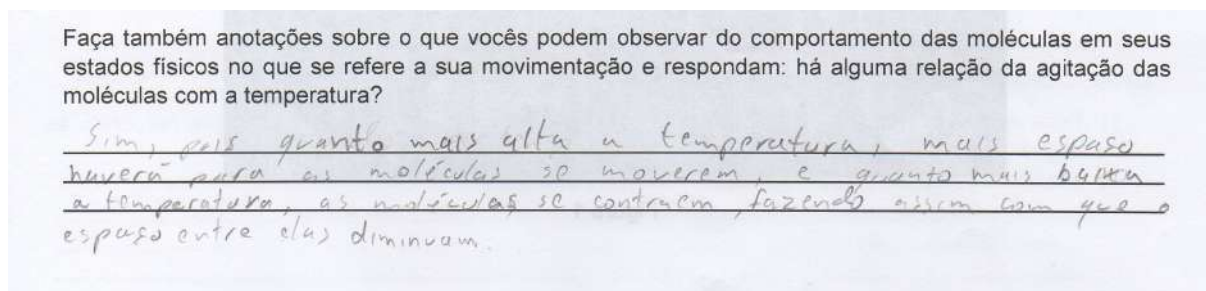 Faça também anotações sobre o que vocês podem observar do comportamento das moléculas em seus
estados físicos no que se refere a sua movimentação e respondam: há alguma relação da agitação das
moléculas com a temperatura?
Sim, pois quanto mais alta a temperatura, mais espaso
haverá para as moléculas se moverem, e quanto mais baixa
a temperatura, as moléculas se contraem, fazendo assim com que o
espaso entre elas diminuam.